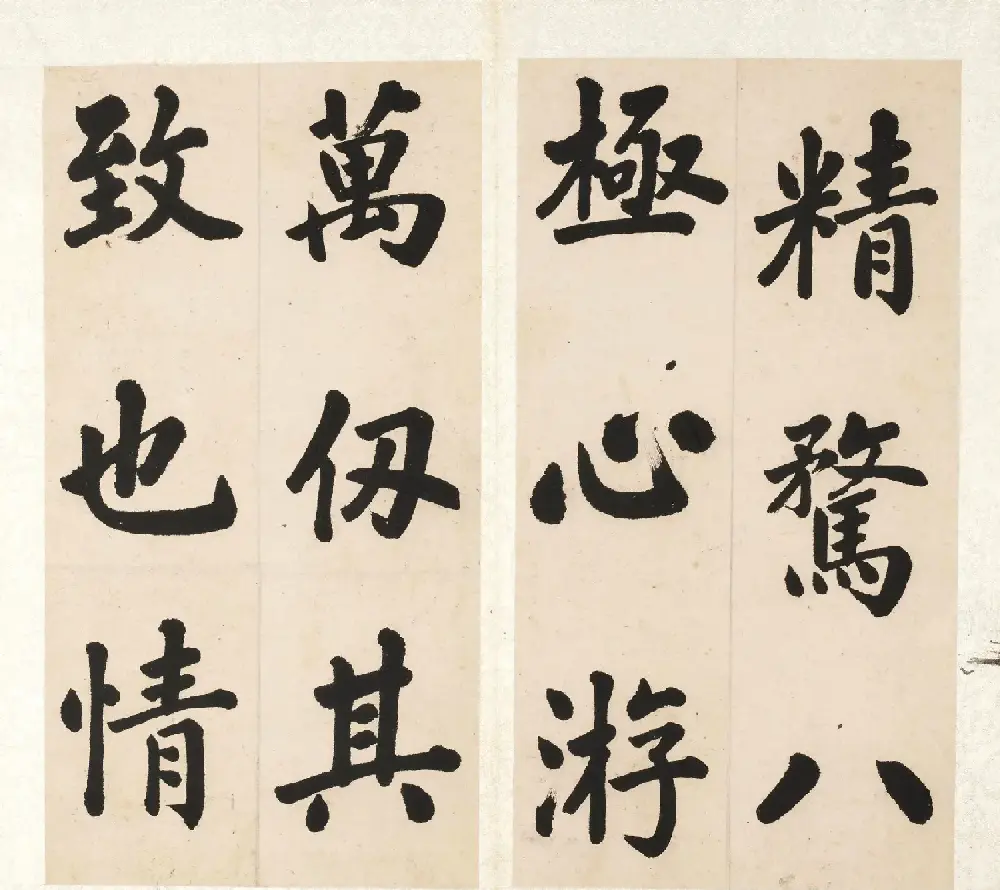 精驁八
極心游
萬仞其
致也情